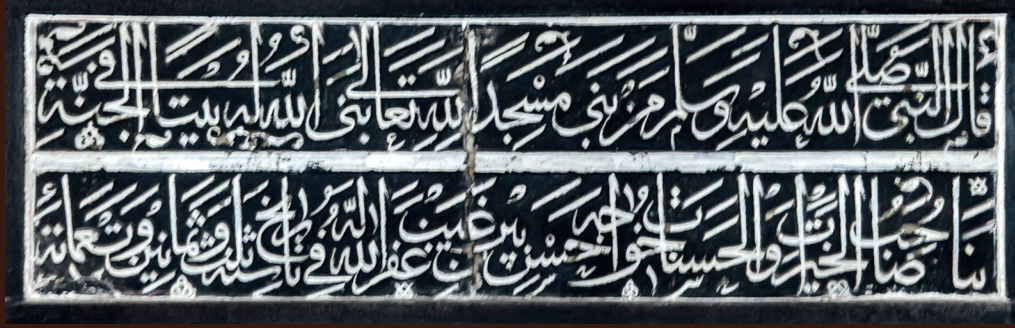 قال النبي صلى الله عليه وسلم من بنى مسجدا لله تعالى بنى الله له بيتا في الجنة
بنا صاحب الخيرات والحسنات خواجه حسن بن غفر الله له في تاريخ سنة ثلث وثمانين وتسعمائة